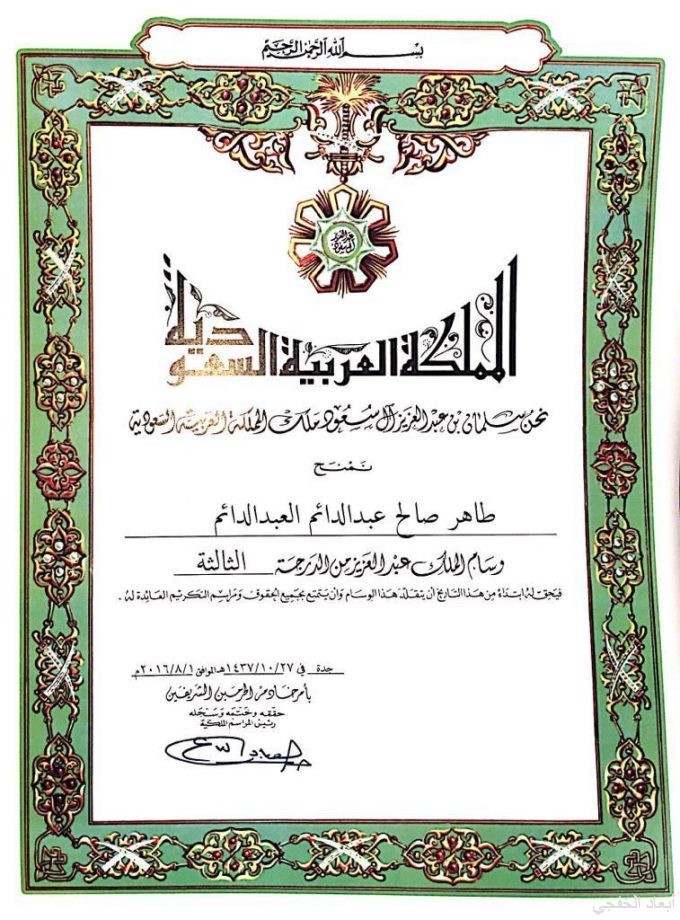 بسم الله الرحمن الرحيم
عبدالعزيز آل سعود
المملكة العربية السعودية
نحن سلمان بن عبدالعزيز آل سعود ملك المملكة العربية السعودية
نمنح
طاهر صالح عبدالدائم العبدالدائم
وسام الملك عبدالعزيز من الدرجة الثالثة
فيحق له ابتداءً من هذا التاريخ أن يتقلد هذا الوسام وأن يتمتع بجميع الحقوق ومراسم التكريم العائدة له .
جدة في ١٤٣٧/١٠/٢٧هـ الموافق ٢٠١٦/٨/١م
بأمر خادم الحرمين الشريفين
حققه وختمه وسجله
رئيس المراسم الملكية
ابعاد الخفجي